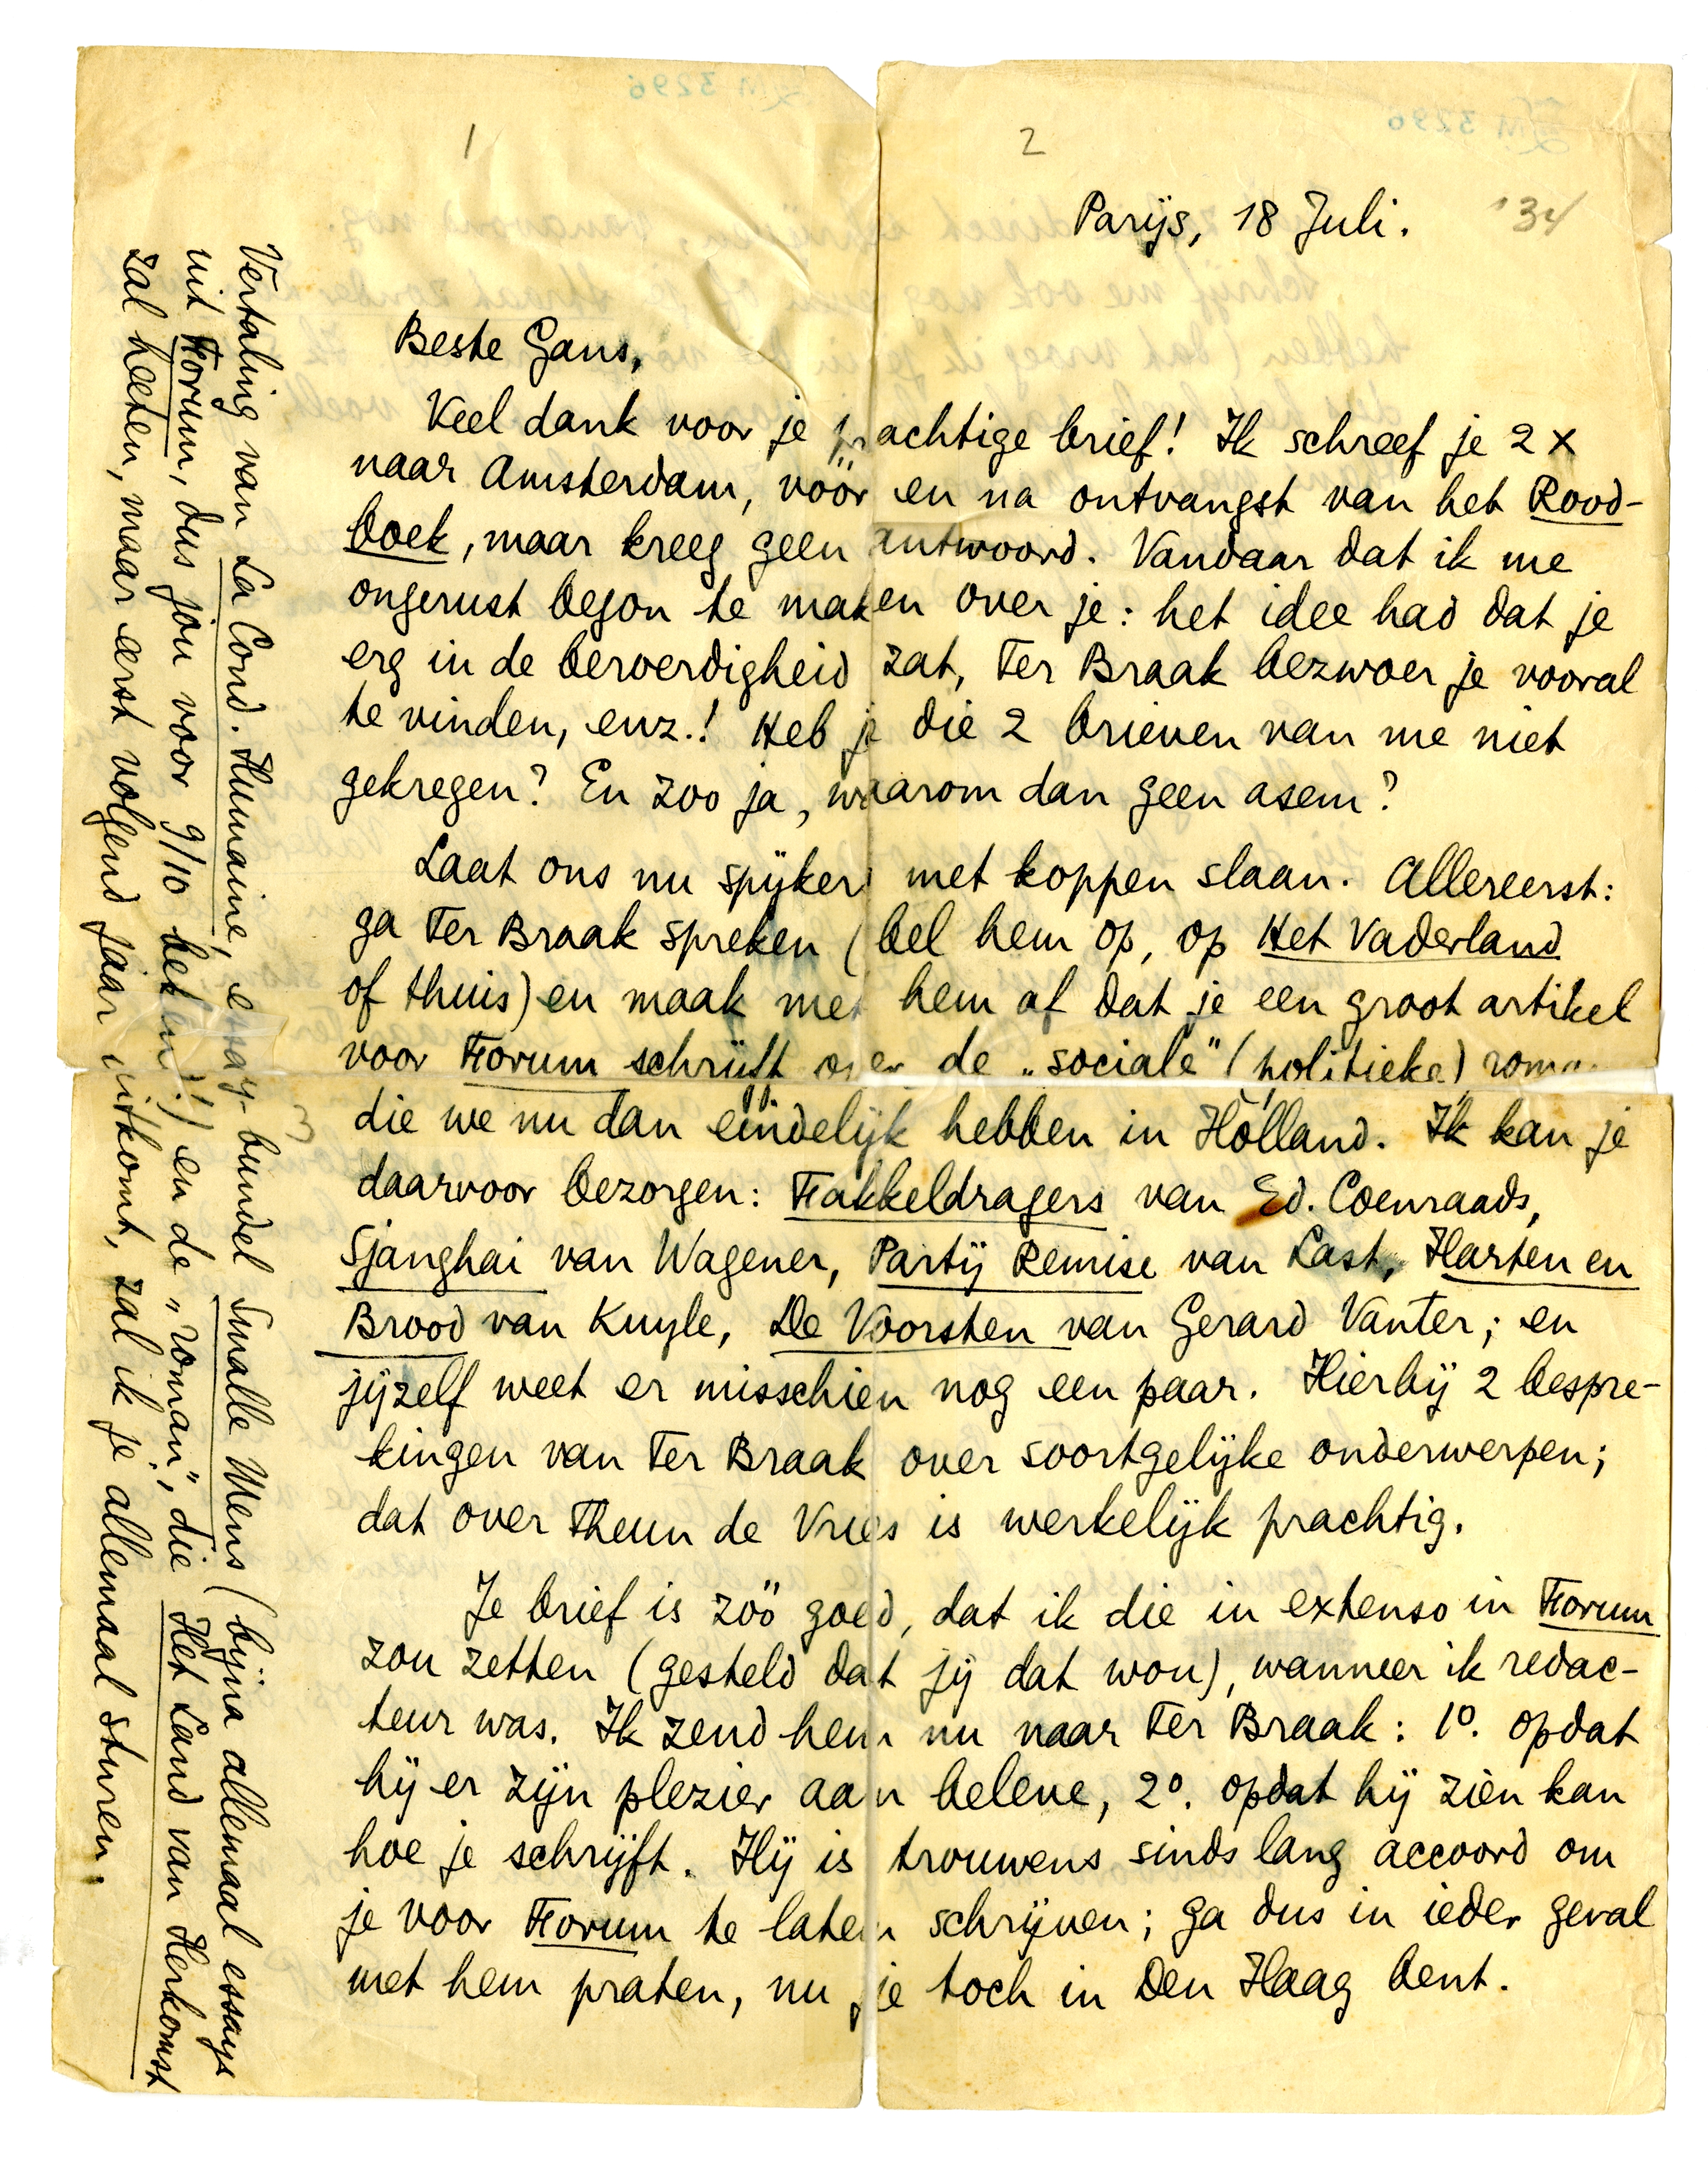 1
2
Parijs, 18 Juli.
'34
Beste Gans,
Veel dank voor je prachtige brief! Ik schreef je 2 x
naar Amsterdam, vóór en na ontvangst van het Rood-
boek, maar kreeg geen antwoord. Vandaar dat ik me
ongerust begon te maken over je: het idee had dat je
erg in de beroerdigheid zat, Ter Braak bezwoer je vooral
te vinden, enz.! Heb je die 2 brieven van me niet
gekregen? En zoo ja, waarom dan geen asem?
Laat ons nu spijkers met koppen slaan. Allereerst:
ga Ter Braak spreken (bel hem op, op Het Vaderland
of thuis) en maak met hem af dat je een groot artikel
voor Forum schrijft over de „sociale" (politieke) roman
die we nu dan eindelijk hebben in Holland. Ik kan je
daarvoor bezorgen: Fakkeldragers van Ed. Coenraads,
Sjanghai van Wagener, Partij Remise van Last, Harten en
Brood van Kuyle, De Voorsten van Gerard Vanter; en
jijzelf weet er misschien nog een paar. Hierbij 2 bespre-
kingen van Ter Braak over soortgelijke onderwerpen;
dat over Theun de Vries is werkelijk prachtig.
Je brief is zóó goed, dat ik die in extenso in Forum
zou zetten (gesteld dat jij dat wou), wanneer ik redac-
teur was. Ik zend hem nu naar Ter Braak: 1º. opdat
hij er zijn plezier aan beleve, 2º. opdat hij zien kan
hoe je schrijft. Hij is trouwens sinds lang accoord om
je voor Forum te laten schrijven; ga dus in ieder geval
met hem praten, nu je toch in Den Haag bent.
Vertaling van La Cond. Humaine, essay-bundel Smalle Mens (bijna allemaal essays
uit Forum, dus jou voor 9/10 bekend!) en de „roman", die Het Land van Herkomst
zal heeten, maar eerst volgend jaar uitkomt, zal ik je allemaal sturen.
3
LM 3296
LM 3296